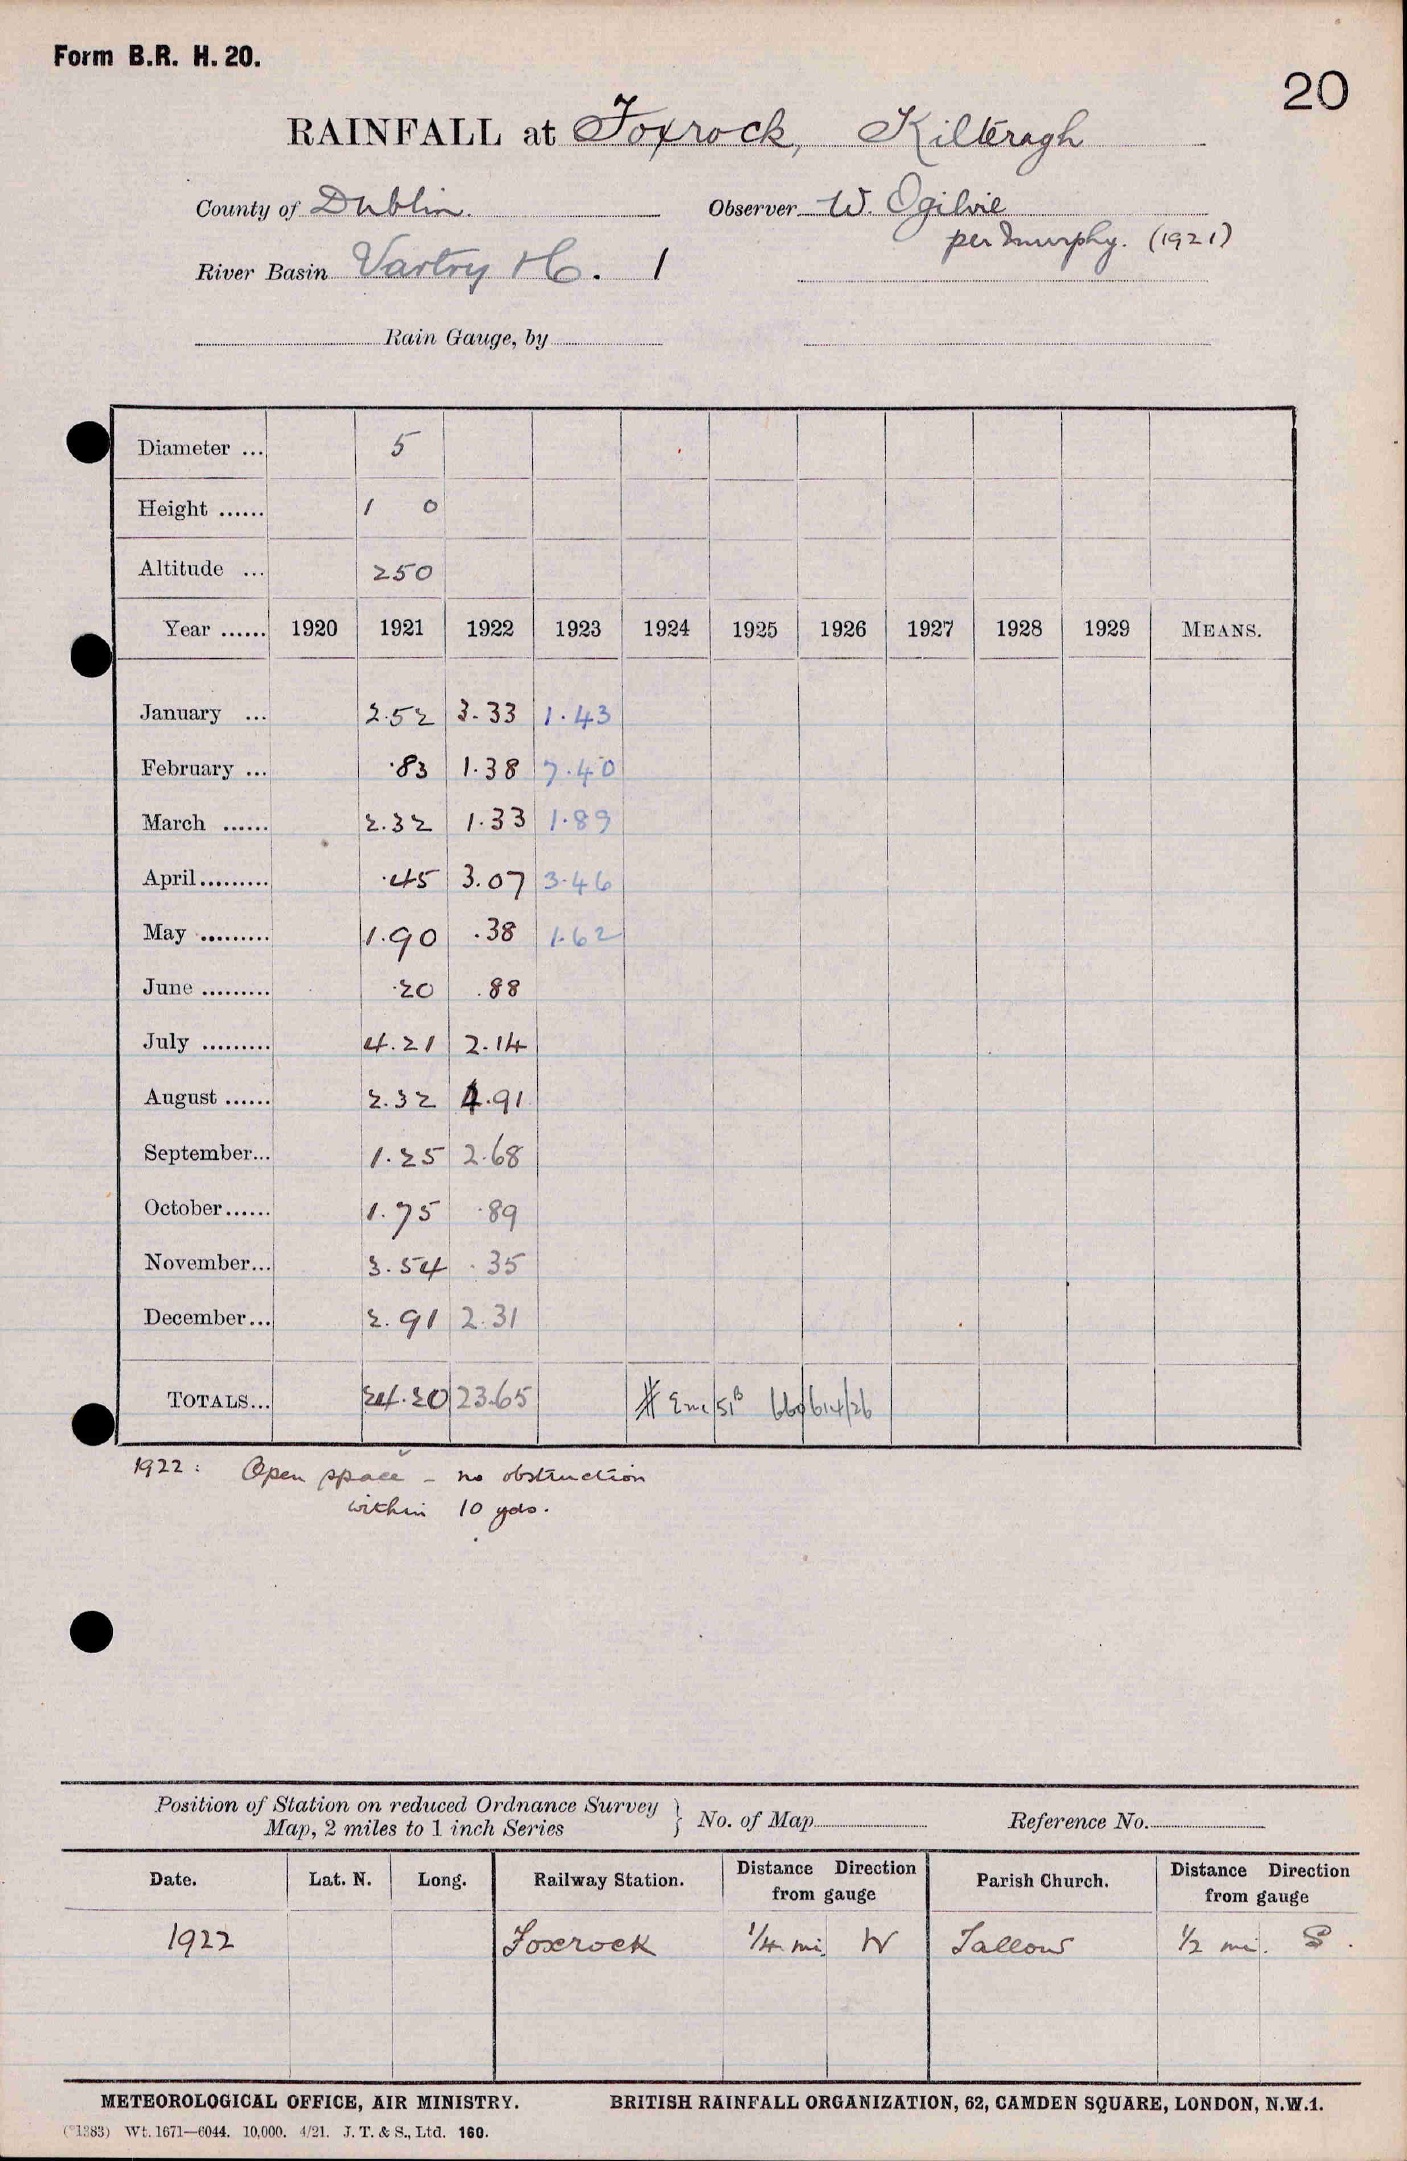 Form B.R. H. 20.
20
RAINFALL at Foxrock, Kilteragh
County of Dublin. Observer W. Ogilvie
per Murphy. (1921)
River Basin Vartry Hc. 1
Rain Gauge, by
Diameter ... 5
Height ...... 1 0
Altitude ... 250
Year ...... 1920 1921 1922 1923 1924 1925 1926 1927 1928 1929 MEANS.
January ... 2.52 3.33 1.43
February ... .83 1.38 7.40
March ...... 2.32 1.33 1.89
April......... .45 3.07 3.46
May ......... 1.90 .38 1.62
June ......... .20 .88
July ......... 4.21 2.14
August ...... 2.32 4.91
September... 1.25 2.68
October...... 1.75 .89
November... 3.54 .35
December... 2.91 2.31
TOTALS... 24.20 23.65 51B 614/26
1922 : Open space - no obstruction
within 10 yds.
Position of Station on reduced Ordnance Survey
Map, 2 miles to 1 inch Series } No. of Map Reference No.
Date. Lat. N. Long. Railway Station. Distance Direction from gauge Parish Church. Distance Direction from gauge
1922 Foxrock 1/4 mi. W Tallow 1/2 mi. S.
METEOROLOGICAL OFFICE, AIR MINISTRY. BRITISH RAINFALL ORGANIZATION, 62, CAMDEN SQUARE, LONDON, N.W.1.
(*1383) Wt. 1671—6044. 10,000. 4/21. J. T. & S., Ltd. 160.